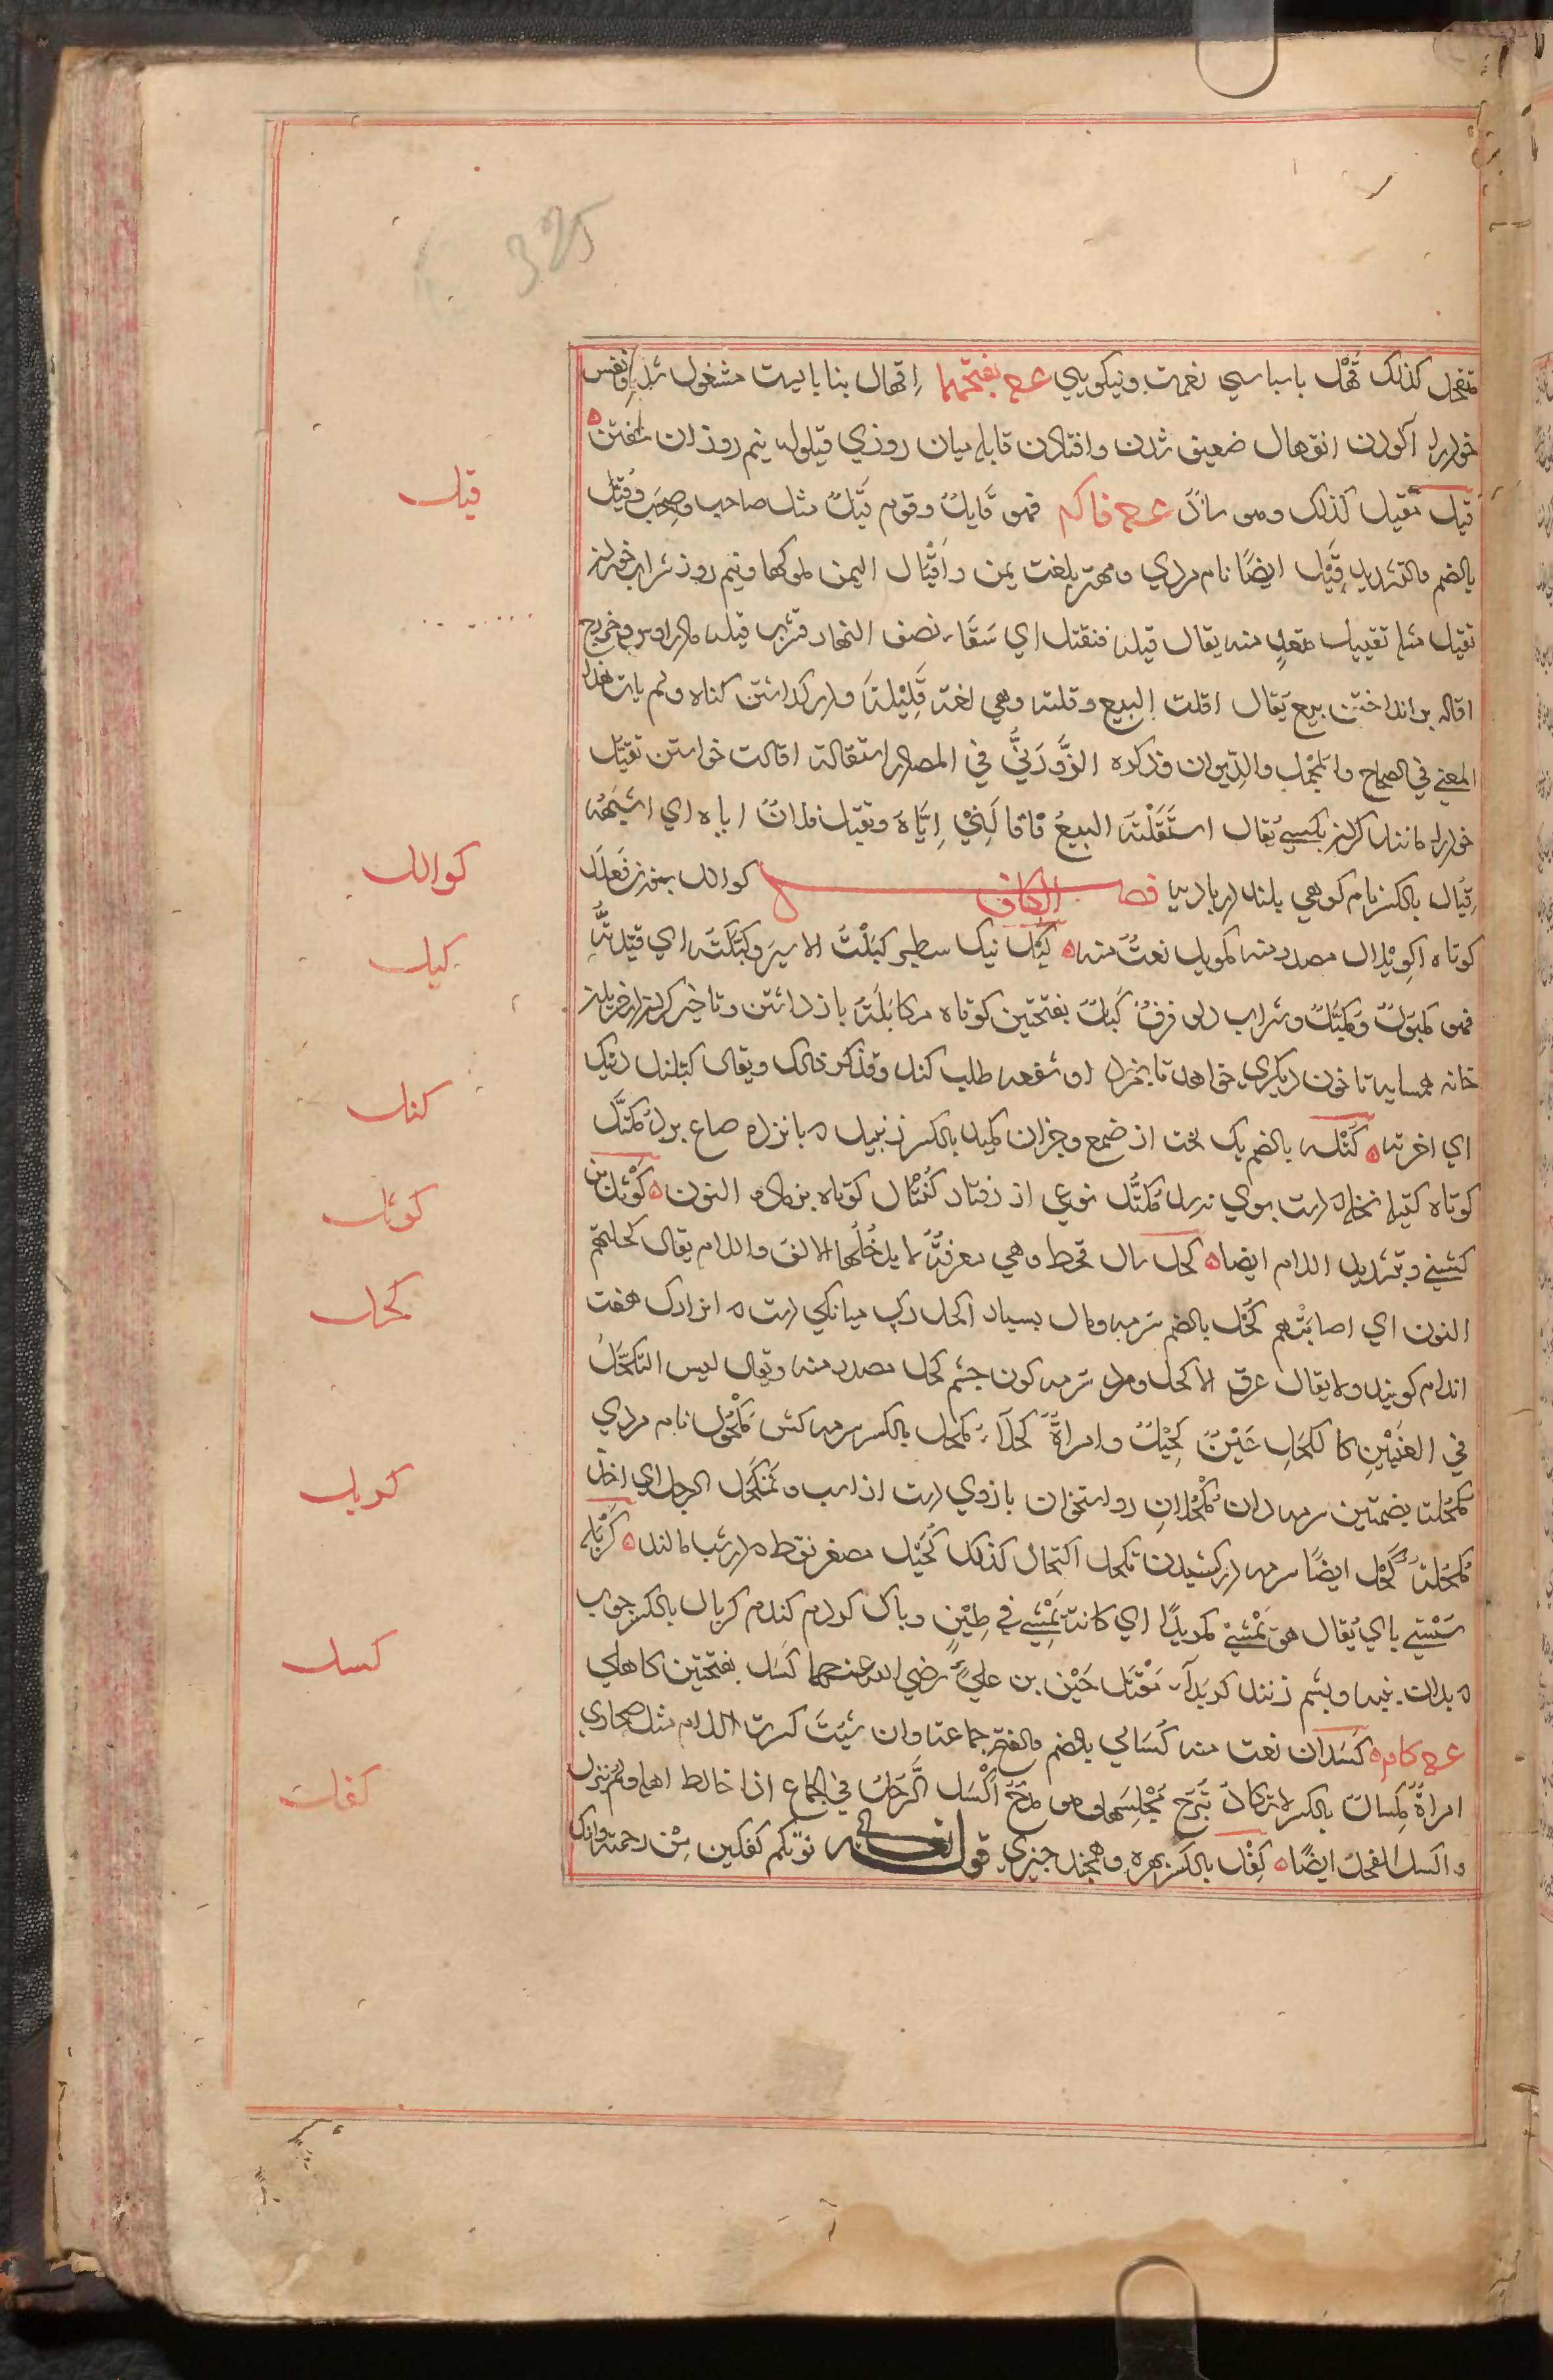 325
متقحل كذلك قهل باسپاسي نعمت ونيكويي ع ح بفتحهما اقهال بنابايست مشغول شدن ونفس
خودرا آلودن انقهال ضعيف شدن وافتادن قايله ميان روزي قيلوله نيم روزان خفتن
قيل مقيل كذلك وهو شاذ ع ح فا كم فهو قايل وقوم قيل مثل صاحب وصحب وقيل
بالضم والتشديد قيل ايضا نام مردي ومهتر بلغت يمن واقيال اليمن ملوكها ونيم روز شراب خوردن
تقيل مثله تقييل متعد منه يقال قيله فتقيل اي سقاه نصف النهار فشرب قيله مادر اوس وخزرج
اقاله بر انداختن بيع يقال اقلت البيع وقلته وهي لغة قليلة وادر كذاشتن كناه ولم يات هذا
المعني في الصحاح والمجمل والديوان وذكره الزوزني في المصادر استقالة اقالت خواستن تقيل
خودرا مانند كردن بكسي يقال استقلته البيع فاقالني اياه وتقيل فلان اباه اي اشبهه
قيال بالكسر نام كوهي بلند در باديه فصل الكاف كوالل بوزن فعلل
كوتاه اكويلال مصدر منه مكويل نعت منه كبل نيك سطبر كبلت الاسير وكبلته اي قيدته
فهو مكبول ومكبل وشراب دلو فرو كبل بفتحتين كوتاه مكابلة باز داشتن وتاخير كردن در خريدن
خانه همسايه تا خون ديكري خواهد تا بخرد او شفعه طلب كند وقد كره ذلك ويقال كبلتك دينك
اي اخرته كتلة بالضم يك لخت از صمغ وجزان مكتل بالكسر زنبيل ه پانزده صاع برد مكتل
كوتاه كتيله نخله ه دست بوي نرسد تكتل نوعي از رفتار كنتال كوتاه بزيادة النون كوثل بن
كشتي وبتشديد اللام ايضا كحل سال قحط وهي معرفة لا يدخلها الالف واللام يقال كحلتهم
السنون اي اصابتهم كحل بالضم سرمه ومال بسيار اكحل رك ميانكي دست ه انرا رك هفت
اندام كويند ولا يقال عرق الاكحل ومرد سرمه كون چشم كحل مصدر منه ويقال ليس التكحل
في العينين كالكحل عين كحيل وامراة كحلاء مكحل بالكسر سرمه كش مكحول نام مردي
مكحلة بضمتين سرمه دان مكحلان دو استخوان بازوي دست از اسب وتمكحل الرجل اي اخذ
مكحلة كحل ايضا سرمه در كشيدن تكحل اكتحال كذلك كحيل مصغر نفط ه بر شتر مالند كربلة
سستي پاي يقال هو يمشي مكربلا اي كانه يمشي في طين وپاك كردن كندم كربال بالكسر چوب
ه بدان پنبه وپشم زنند كربلاء مقتل حسين بن علي رضي الله عنهما كسل بفتحتين كاهلي
ع ح كام كسلان نعت منه كسالي بالضم والفتح جماعة وان شئت كسرت اللام مثل صحاري
امراة مكسال بالكسر لا تكاد تبرح مجلسها وهو مدح اكسل الرجل في الجماع اذا خالط اهله ولم ينزل
واكسل الفحل ايضا كفل بالكسر بهره وهمچند چيزي قوله تعالى نوتكم كفلين من رحمته وانك
قيل
كوالل
كبل
كتل
كوثل
كحل
كربل
كسل
كفل